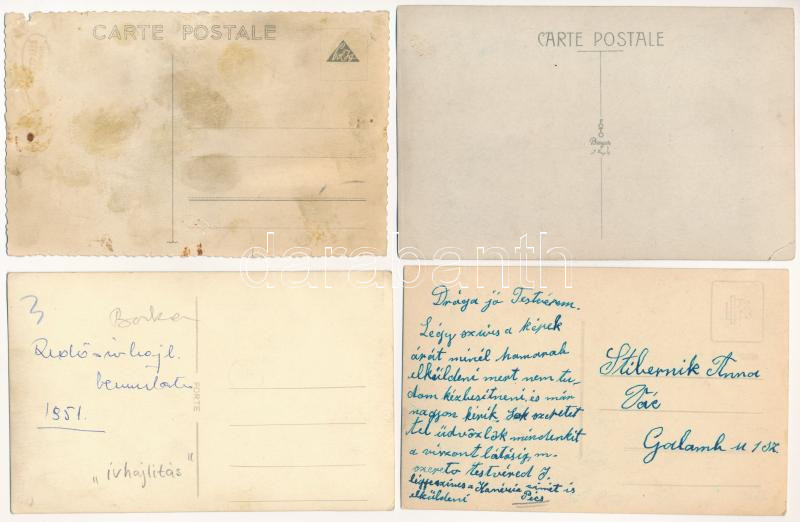 CARTE POSTALE
CARTE POSTALE
FOTO
darabanth
3
Borka
Redő-ívhajl.
bemutató
1951.
„ívhajlítás”
Drága jó Testvérem.
Légy szíves a képek
árát minél hamarab
elküldeni mert nem tu-
dom kézbesítneni, és már
nagyon kérik. Sok szeretet
tel üdvözlök mindenkit
a viszont látásig, m.
szerető testvéred J.
légy szíves a címét is
elküldeni Pécs
Stibernik Anna
Vác
Galamb u 1 sz.